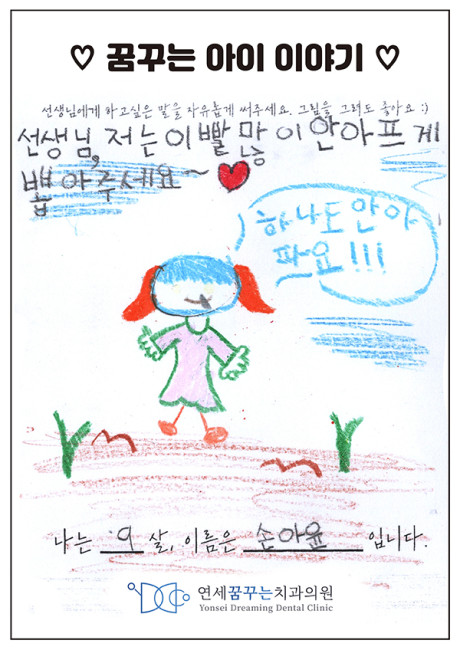 ♡ 꿈꾸는 아이 이야기 ♡
선생님에게 하고싶은 말을 자유롭게 써주세요. 그림을 그려도 좋아요 :)
선생님, 저는 이빨 많이 안아프게
뽑아주세요~
하나도 안아
파요!!!
나는 9 살, 이름은 손아윤 입니다.
연세꿈꾸는치과의원
Yonsei Dreaming Dental Clinic